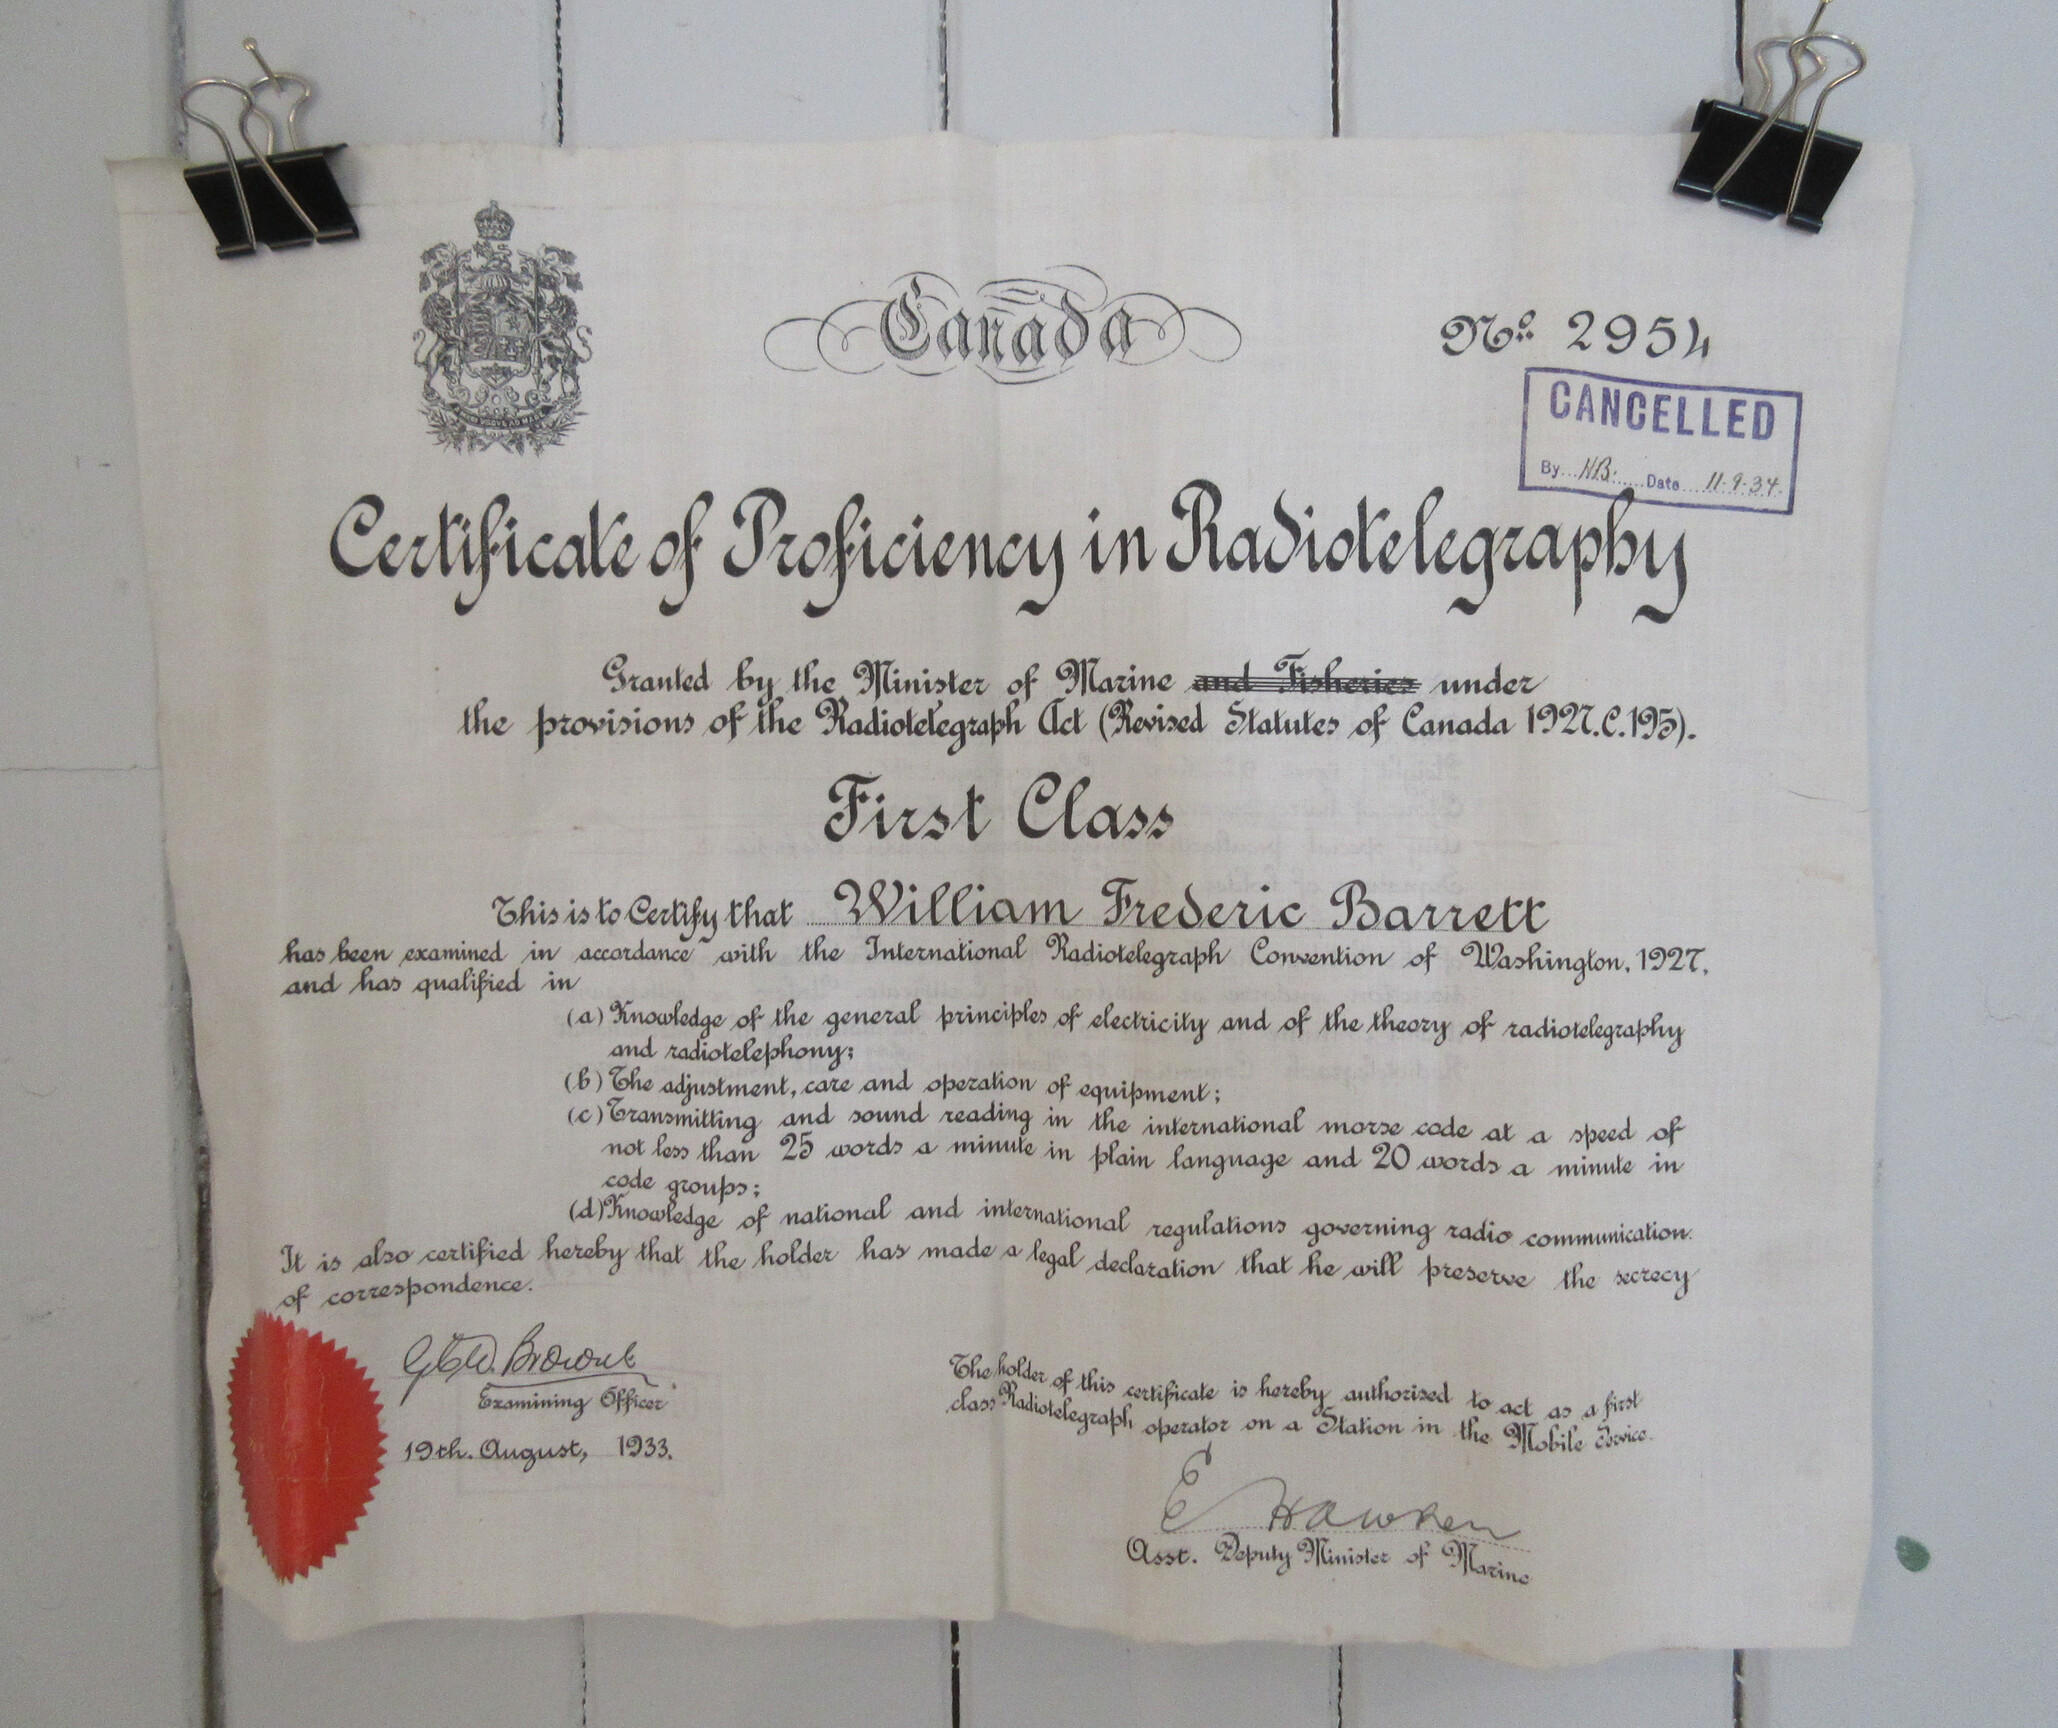 Canada
No. 2954
CANCELLED
By HB. Date 11-9-34
Certificate of Proficiency in Radiotelegraphy
Granted by the Minister of Marine and Fisheries under
the provisions of the Radiotelegraph Act (Revised Statutes of Canada 1927.C.195).
First Class
This is to Certify that William Frederic Barrett
has been examined in accordance with the International Radiotelegraph Convention of Washington, 1927,
and has qualified in
(a) Knowledge of the general principles of electricity and of the theory of radiotelegraphy
and radiotelephony;
(b) The adjustment, care and operation of equipment;
(c) Transmitting and sound reading in the international morse code at a speed of
not less than 25 words a minute in plain language and 20 words a minute in
code groups;
(d) Knowledge of national and international regulations governing radio communication.
It is also certified hereby that the holder has made a legal declaration that he will preserve the secrecy
of correspondence.
Browne
Examining Officer
19th. August, 1933.
The holder of this certificate is hereby authorised to act as a first
class Radiotelegraph operator on a Station in the Mobile Service.
E Hawken
Asst. Deputy Minister of Marine